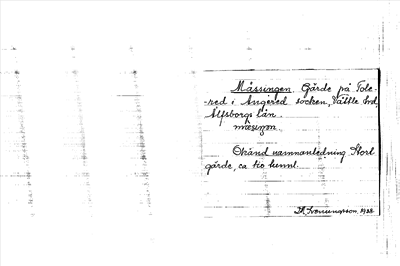 Mässingen. Gärde på Tole-
red i Angered socken, Vättle hrd,
Älfsborgs län.
mæsiŋən.
Okänd namnanledning Stort
gärde, ca tio tunnl.